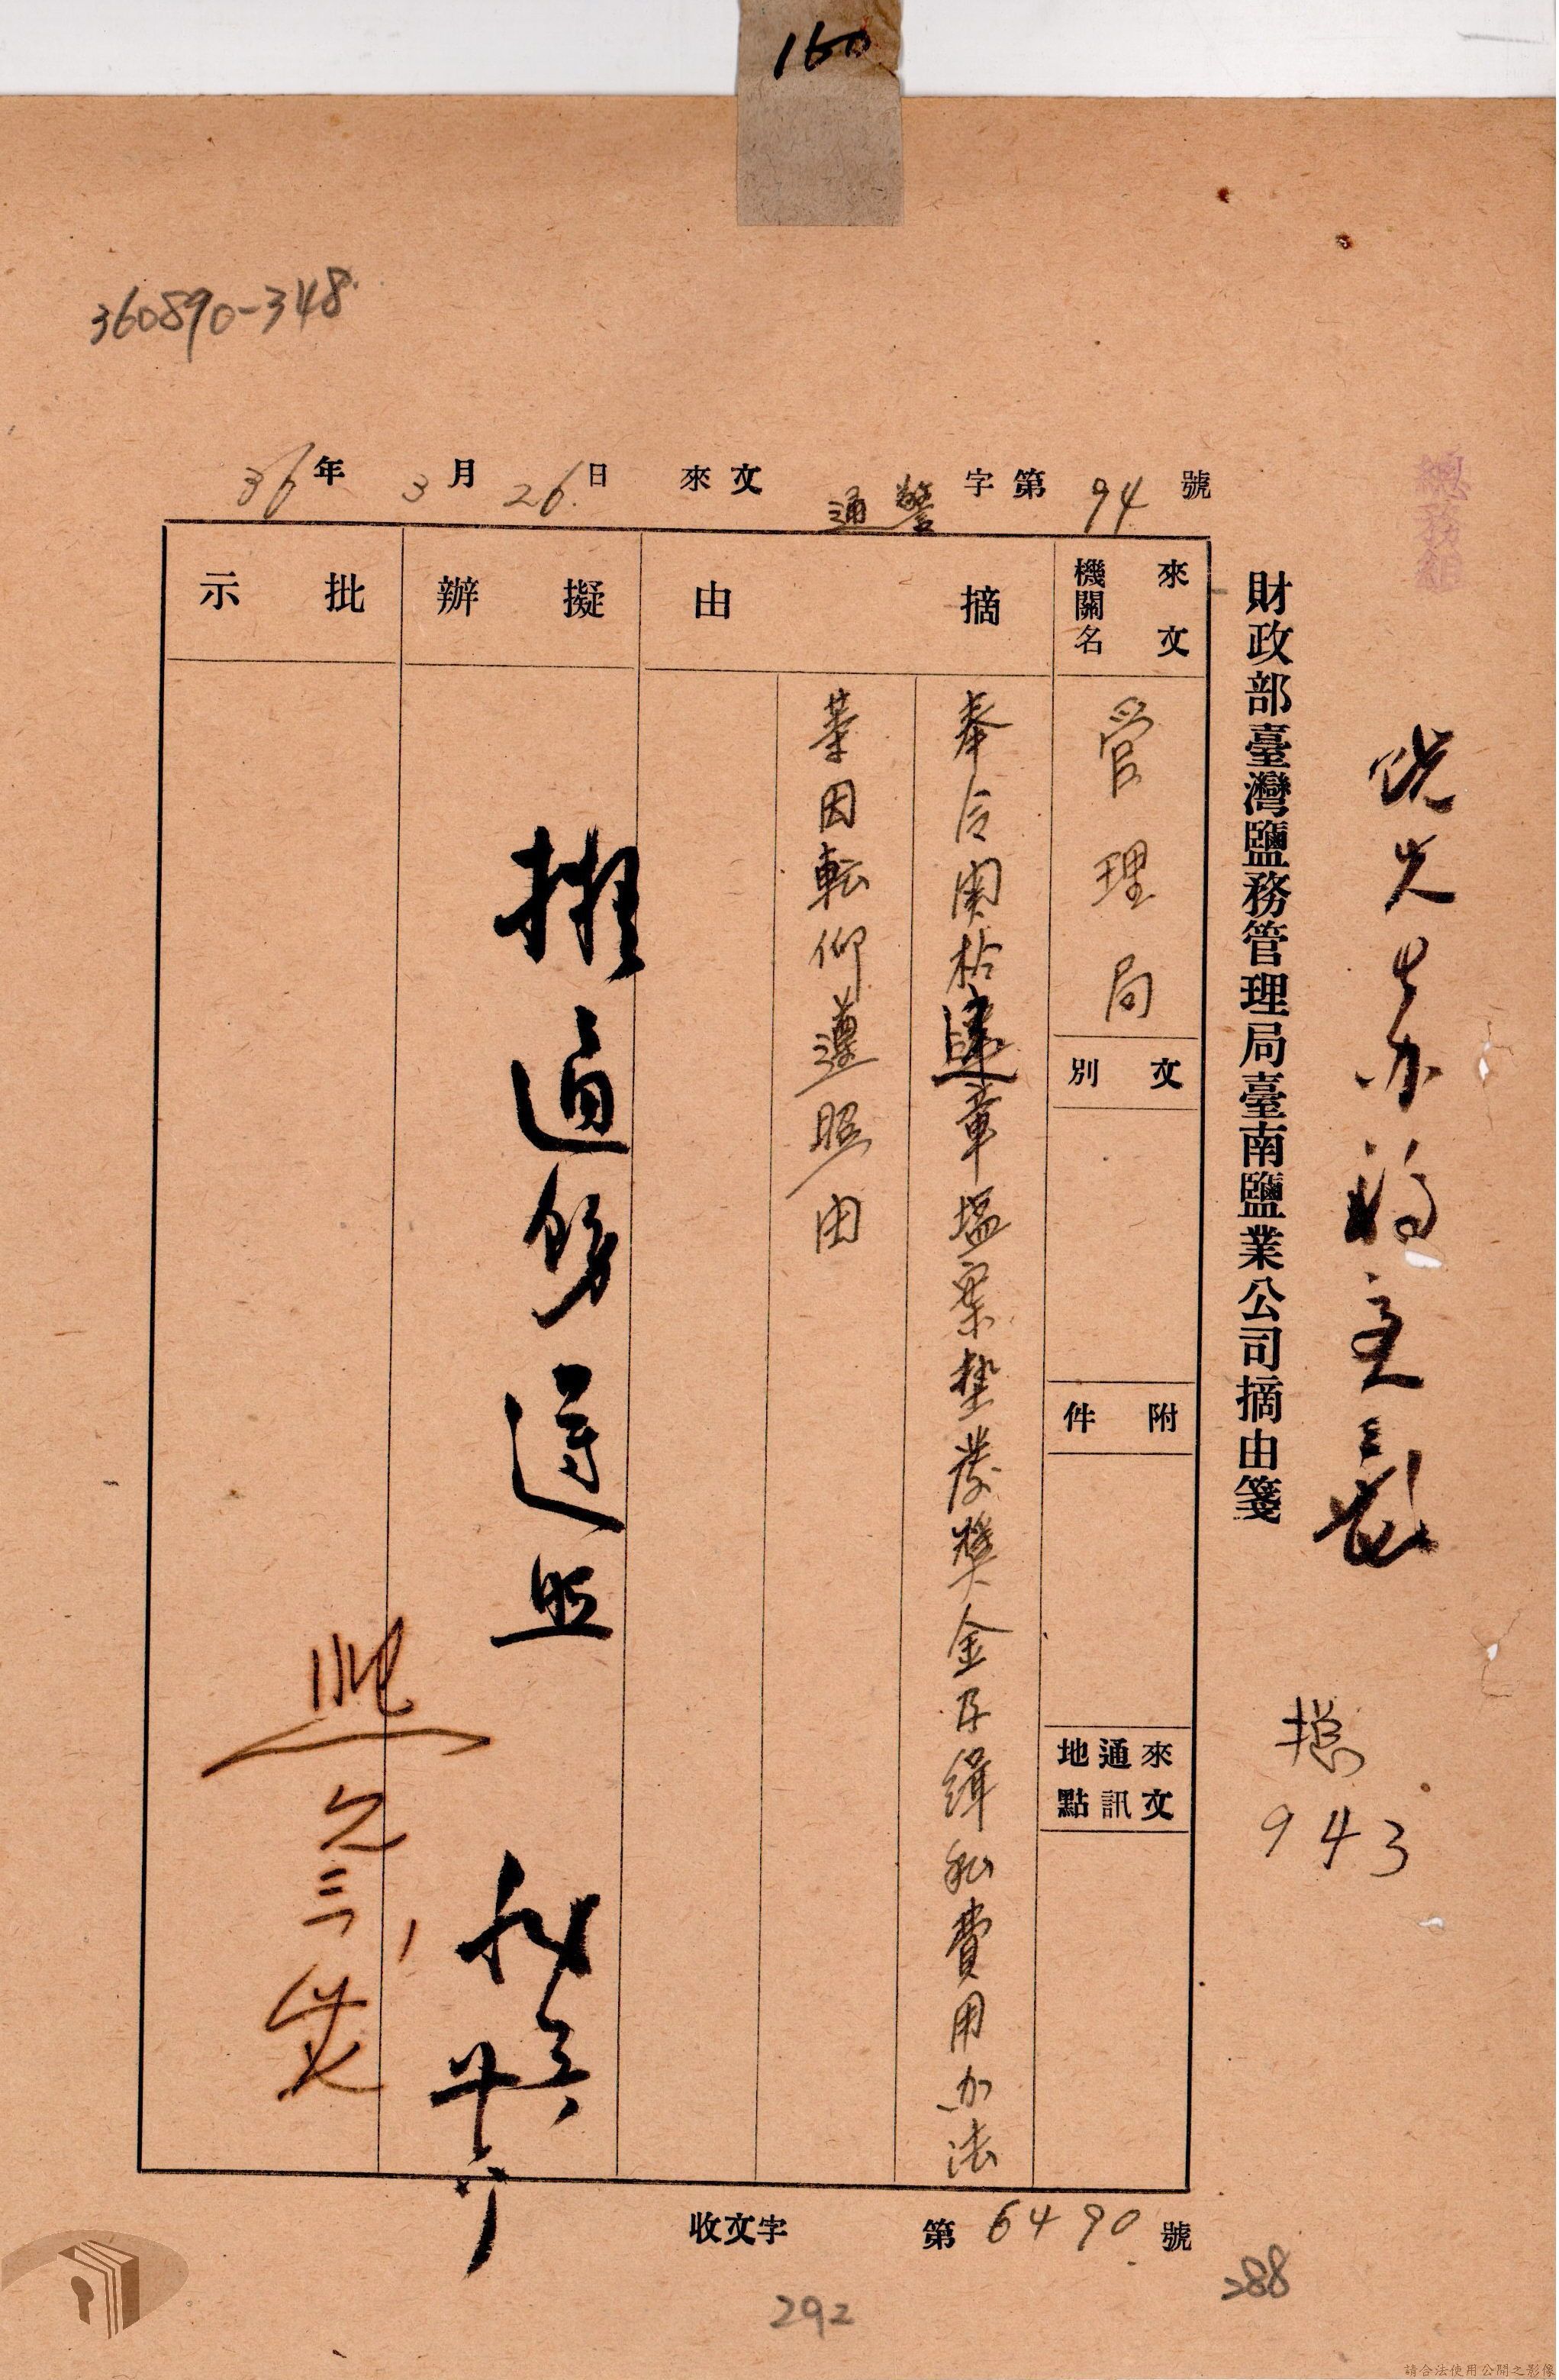 160
360890-348
36年 3月 26日 來文 通警 字第 94 號
總務組
財政部臺灣鹽務管理局臺南鹽業公司摘由箋
總
943
來文機關名
管理局
文別
附件
來文通訊地點
摘由
奉令關於違章塩案墊發獎金及緝私費用办法
等因転仰遵照由
擬辦
擬通飭遵照
批示
三
收文字 第 6490 號
288
292
請合法使用公開之影像